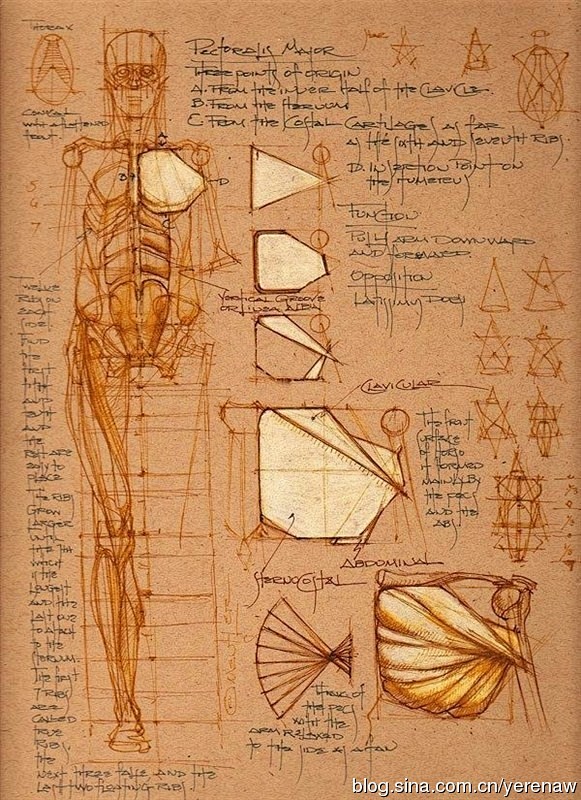 Thorax
Pectoralis Major
Three points of origin
A. From the inner half of the Clavicle.
B. From the Sternum
C. From the Costal Cartilages as far
as the sixth and seventh ribs.
D. Insertion point on
the Humereus
Function
Pull arm downward
and forward.
Opposition
Latissimus Dorsi
B
D
5
6
7
Vertical Groove
or Linea Alba
Clavicular
The front
surface
of torso
is formed
mainly by
the pecs
and the
abs.
Abdominal
Sternocostal
Think of
the pecs
with the
arm relaxed
to the side as a fan
Twelve
ribs on
each
side.
the
and
the
easy to
place
the ribs
grow
larger
until
the 7th
which
is the
longest
and the
last one
to attach
to the
sternum.
The first
7 ribs
are
called
true
ribs.
the
next three false and the
last two floating ribs.
blog.sina.com.cn/yerenaw